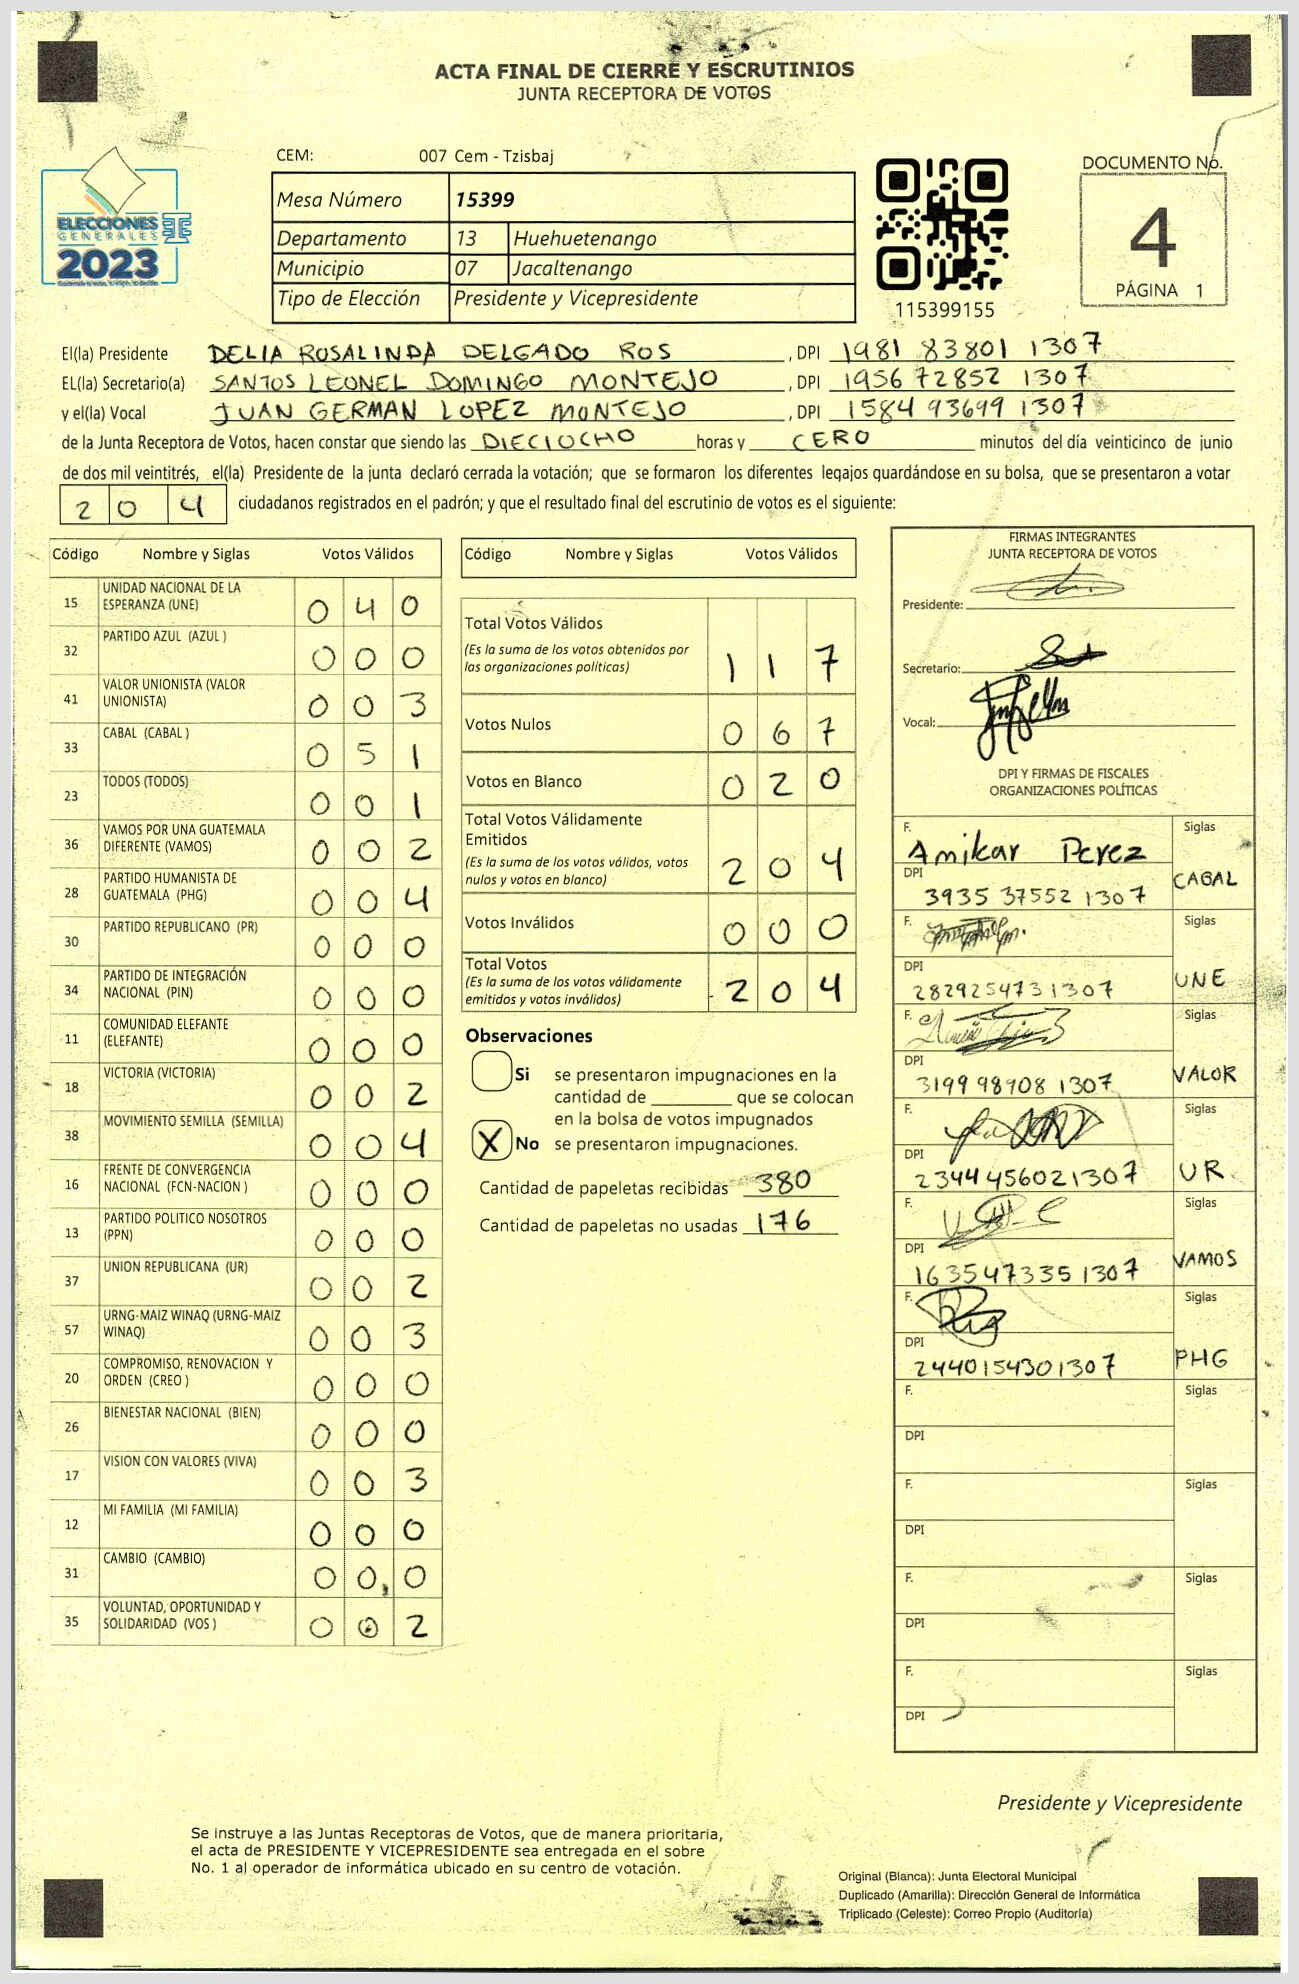 ACTA FINAL DE CIERRE Y ESCRUTINIOS
JUNTA RECEPTORA DE VOTOS
CEM: 007 Cem - Tzisbaj
DOCUMENTO No.
4
PÁGINA 1
ELECCIONES
GENERALES
2023
Mesa Número 15399
Departamento 13 Huehuetenango
Municipio 07 Jacaltenango
Tipo de Elección Presidente y Vicepresidente
115399155
El(la) Presidente DELIA ROSALINDA DELGADO ROS , DPI 1981 83801 1307
EL(la) Secretario(a) SANTOS LEONEL DOMINGO MONTEJO , DPI 1956 72852 1307
y el(la) Vocal JUAN GERMAN LOPEZ MONTEJO , DPI 1584 93699 1307
de la Junta Receptora de Votos, hacen constar que siendo las DIECIOCHO horas y CERO minutos del día veinticinco de junio
de dos mil veintitrés, el(la) Presidente de la junta declaró cerrada la votación; que se formaron los diferentes legajos guardándose en su bolsa, que se presentaron a votar
204 ciudadanos registrados en el padrón; y que el resultado final del escrutinio de votos es el siguiente:
Código Nombre y Siglas Votos Válidos
15 UNIDAD NACIONAL DE LA ESPERANZA (UNE) 0 4 0
32 PARTIDO AZUL (AZUL ) 0 0 0
41 VALOR UNIONISTA (VALOR UNIONISTA) 0 0 3
33 CABAL (CABAL ) 0 5 1
23 TODOS (TODOS) 0 0 1
36 VAMOS POR UNA GUATEMALA DIFERENTE (VAMOS) 0 0 2
28 PARTIDO HUMANISTA DE GUATEMALA (PHG) 0 0 4
30 PARTIDO REPUBLICANO (PR) 0 0 0
34 PARTIDO DE INTEGRACIÓN NACIONAL (PIN) 0 0 0
11 COMUNIDAD ELEFANTE (ELEFANTE) 0 0 0
18 VICTORIA (VICTORIA) 0 0 2
38 MOVIMIENTO SEMILLA (SEMILLA) 0 0 4
16 FRENTE DE CONVERGENCIA NACIONAL (FCN-NACION ) 0 0 0
13 PARTIDO POLITICO NOSOTROS (PPN) 0 0 0
37 UNION REPUBLICANA (UR) 0 0 2
57 URNG-MAIZ WINAQ (URNG-MAIZ WINAQ) 0 0 3
20 COMPROMISO, RENOVACION Y ORDEN (CREO ) 0 0 0
26 BIENESTAR NACIONAL (BIEN) 0 0 0
17 VISION CON VALORES (VIVA) 0 0 3
12 MI FAMILIA (MI FAMILIA) 0 0 0
31 CAMBIO (CAMBIO) 0 0 0
35 VOLUNTAD, OPORTUNIDAD Y SOLIDARIDAD (VOS ) 0 0 2
Código Nombre y Siglas Votos Válidos
Total Votos Válidos
(Es la suma de los votos obtenidos por
las organizaciones políticas) 1 1 7
Votos Nulos 0 6 7
Votos en Blanco 0 2 0
Total Votos Válidamente
Emitidos
(Es la suma de los votos válidos, votos
nulos y votos en blanco) 2 0 4
Votos Inválidos 0 0 0
Total Votos
(Es la suma de los votos válidamente
emitidos y votos inválidos) 2 0 4
Observaciones
Si se presentaron impugnaciones en la
cantidad de ________ que se colocan
en la bolsa de votos impugnados
X No se presentaron impugnaciones.
Cantidad de papeletas recibidas 380
Cantidad de papeletas no usadas 176
FIRMAS INTEGRANTES
JUNTA RECEPTORA DE VOTOS
Presidente:
Secretario:
Vocal:
DPI Y FIRMAS DE FISCALES
ORGANIZACIONES POLÍTICAS
F. Amikar Perez Siglas
DPI 3935 37552 1307 CABAL
F. Siglas
DPI 2829254731307 UNE
F. Siglas
DPI 3199 98908 1307 VALOR
F. Siglas
DPI 2344 456021307 UR
F. Siglas
DPI 1635473351307 VAMOS
F. Siglas
DPI 2440154301307 PHG
F. Siglas
DPI
F. Siglas
DPI
F. Siglas
DPI
F. Siglas
DPI
Presidente y Vicepresidente
Se instruye a las Juntas Receptoras de Votos, que de manera prioritaria,
el acta de PRESIDENTE Y VICEPRESIDENTE sea entregada en el sobre
No. 1 al operador de informática ubicado en su centro de votación.
Original (Blanca): Junta Electoral Municipal
Duplicado (Amarilla): Dirección General de Informática
Triplicado (Celeste): Correo Propio (Auditoría)